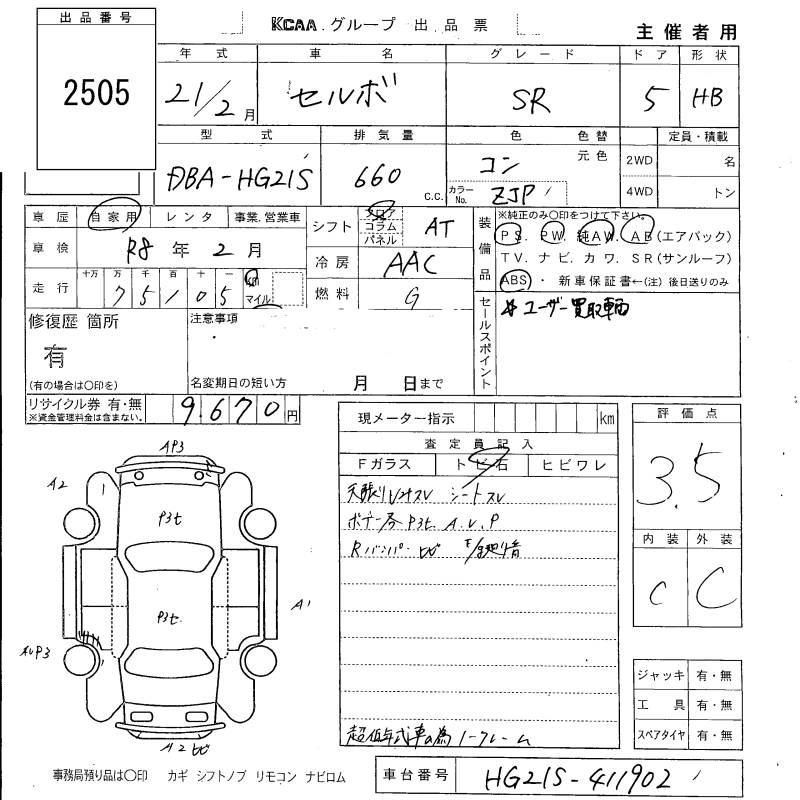 出品番号
2505
KCAA グループ 出品票
主催者用
年式 車名 グレード ドア 形状
21/2月 セルボ SR 5 HB
型式 排気量 色 色替 定員・積載
DBA-HG21S 660 C.C. コン 元色 2WD 名
カラーNo. ZJP 4WD トン
車歴 自家用 レンタ 事業.営業車
車検 R8年2月
走行 十万 万 千 百 十 一
75105 km マイル
シフト フロア コラム パネル AT
冷房 AAC
燃料 G
装備品
※純正のみ〇印をつけて下さい。
PS. PW. 純AW. AB(エアバック)
TV. ナビ. カワ. SR(サンルーフ)
ABS・新車保証書←(注)後日送りのみ
セールスポイント
ユーザー買取車両
修復歴 箇所
有
(有の場合は〇印を)
注意事項
名変期日の短い方 月 日まで
リサイクル券 有・無
※資金管理料金は含まない。
9,670円
現メーター指示 km
査定員記入
Fガラス トビ石 ヒビワレ
天張り シートスレ
ボデー各 P3セ. A.U.P
Rバンパーヒビ
超低年式車の為ノークレーム
評価点
3.5
内装 外装
C C
ジャッキ 有・無
工具 有・無
スペアタイヤ 有・無
AP3
A2
P3セ
P3セ.
A1
AUP3
A2 ヒビ
事務局預り品は〇印 カギ シフトノブ リモコン ナビロム
車台番号 HG21S-411902